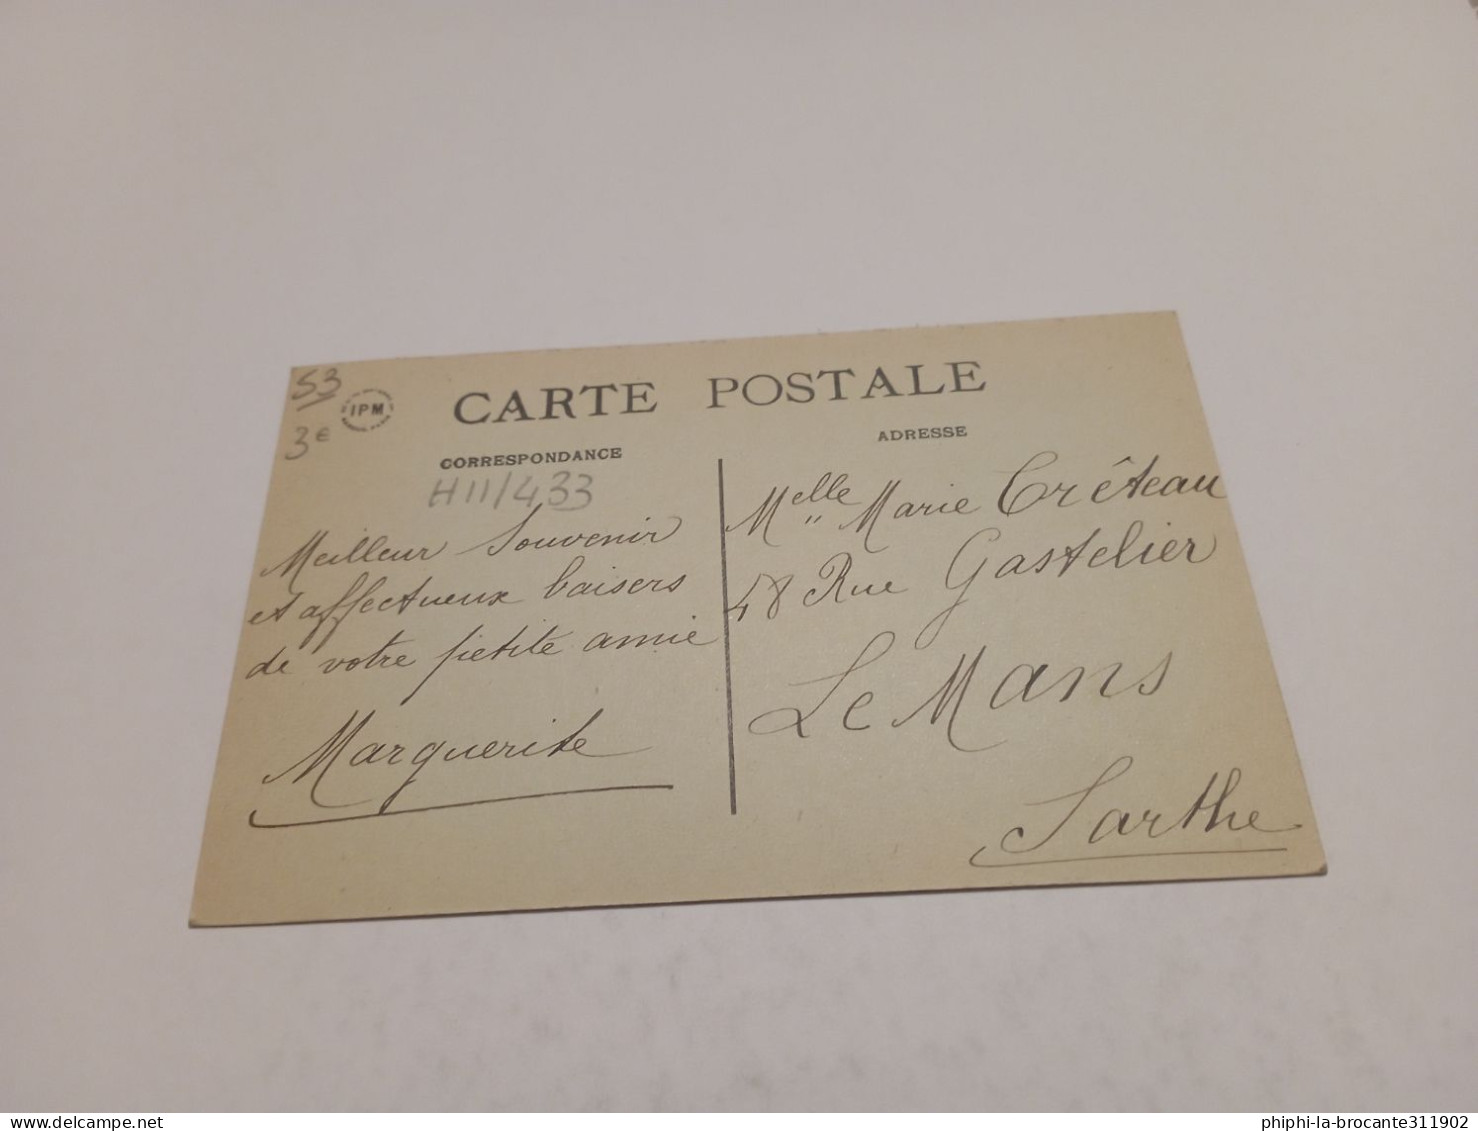 53
3€
IPM
CARTE POSTALE
CORRESPONDANCE
H11/433
Meilleur Souvenir
et affectueux baisers
de votre petite amie
Marguerite
ADRESSE
Melle Marie Crêteau
48 Rue Gastelier
Le Mans
Sarthe
phiphi-la-brocante311902